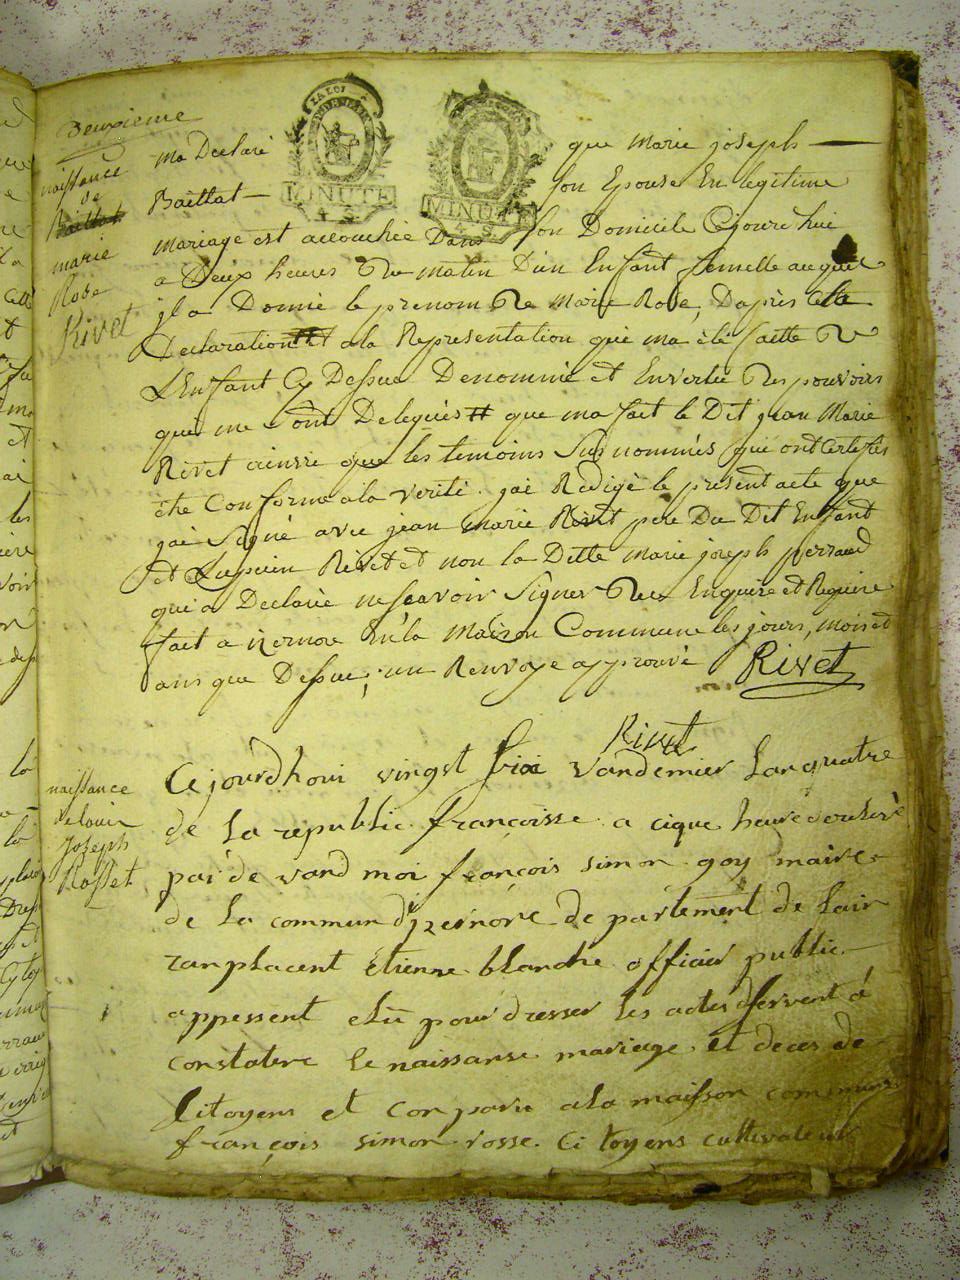 Deuxieme
naissance
de
Baillat
marie
Rose
Rivet
LA LOI
MINUTE
4 S.
MINUTE
4 S.
ma Declaré que Marie joseph
Baillat son Epouse En legitime
Mariage est accouchée Dans son Domicile Cejourdhui
a Deux heures Du matin D'un Enfant femelle auquel
jl a Donné le prenom De Marie Rose, Daprès cette
Declaration et a la Representation qui ma été faitte De
L'Enfant Cy Dessus Denommé et En vertu Des pouvoirs
qui me Sont Delegués # que ma fait le Dit jean Marie
Rivet ainsie que les temoins Susnommés qui ont Certifiés
être Conforme a la verité. jai Redigé le present acte que
jai Signé avec jean marie Rivet pere Du Dit Enfant
et Rivet et non la Ditte Marie joseph perraud
qui a Declarée ne scavoir Signer De Enquire et Require
fait a izernore En la Maison Commune les jours, mois et
ans que Dessus, un Renvoye approuvé Rivet
Rivet
naissance
de louis
Joseph
Rosset
Cejourdhoui vingst six Vandemier Lan quatre
de La republic françoisse a cique heure
pár de vand moi françois simon goy maire
de La commun djzernore de partement de Lain
ranplacent étienne blanche officier public
appessent elü pour dresser les actes
constatere le naissanse mariage et deces de
Citoyens et conparu a la maisson commune
françois simon rosse. Citoyens cultivateur